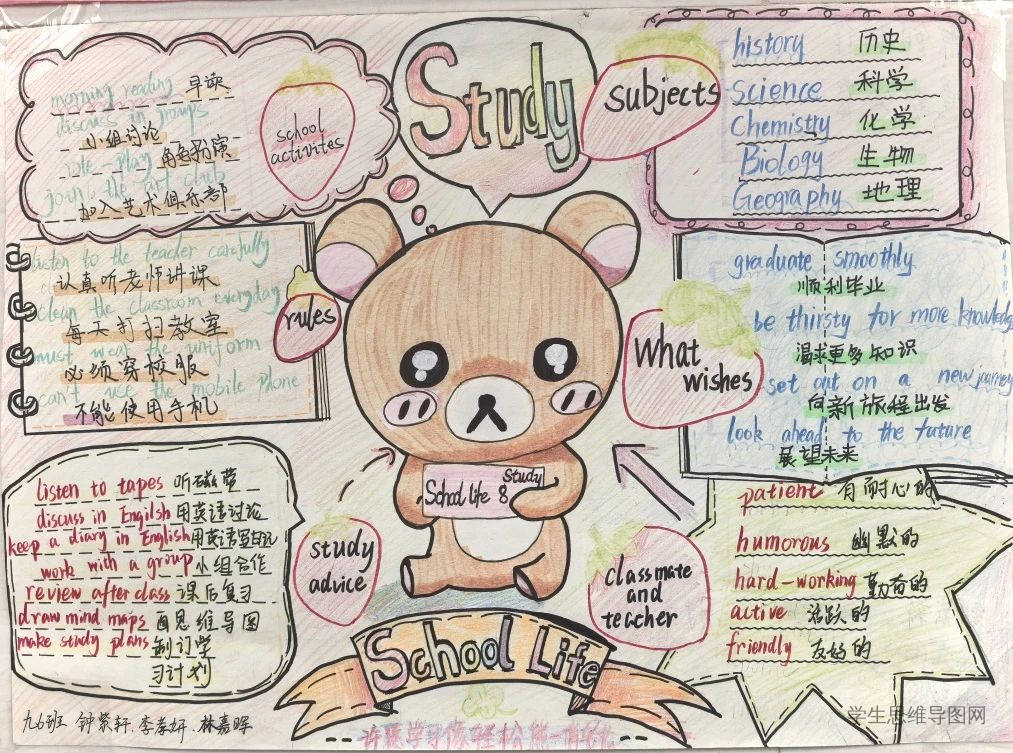 Study
morning reading 早读
discuss in groups
小组讨论
role-play 角色扮演
join the art club
加入艺术俱乐部
school
activites
subjects
history 历史
Science 科学
Chemistry 化学
Biology 生物
Geography 地理
listen to the teacher carefully
认真听老师讲课
clean the classroom everyday
每天打扫教室
must wear the uniform
必须穿校服
can't use the mobile phone
不能使用手机
rules
What
wishes
graduate smoothly
顺利毕业
be thirsty for more knowledge
渴求更多知识
set out on a new journey
向新旅程出发
look ahead to the future
展望未来
School life & Study
listen to tapes 听磁带
discuss in Engilsh 用英语讨论
keep a diary in English 用英语写日记
work with a group 小组合作
review after class 课后复习
draw mind maps 画思维导图
make study plans 制订学
习计划
study
advice
classmate
and
teacher
patient 有耐心的
humorous 幽默的
hard-working 勤奋的
active 活跃的
friendly 友好的
School Life
九6班 钟紫轩.李孝妍.林嘉晖
学生思维导图网